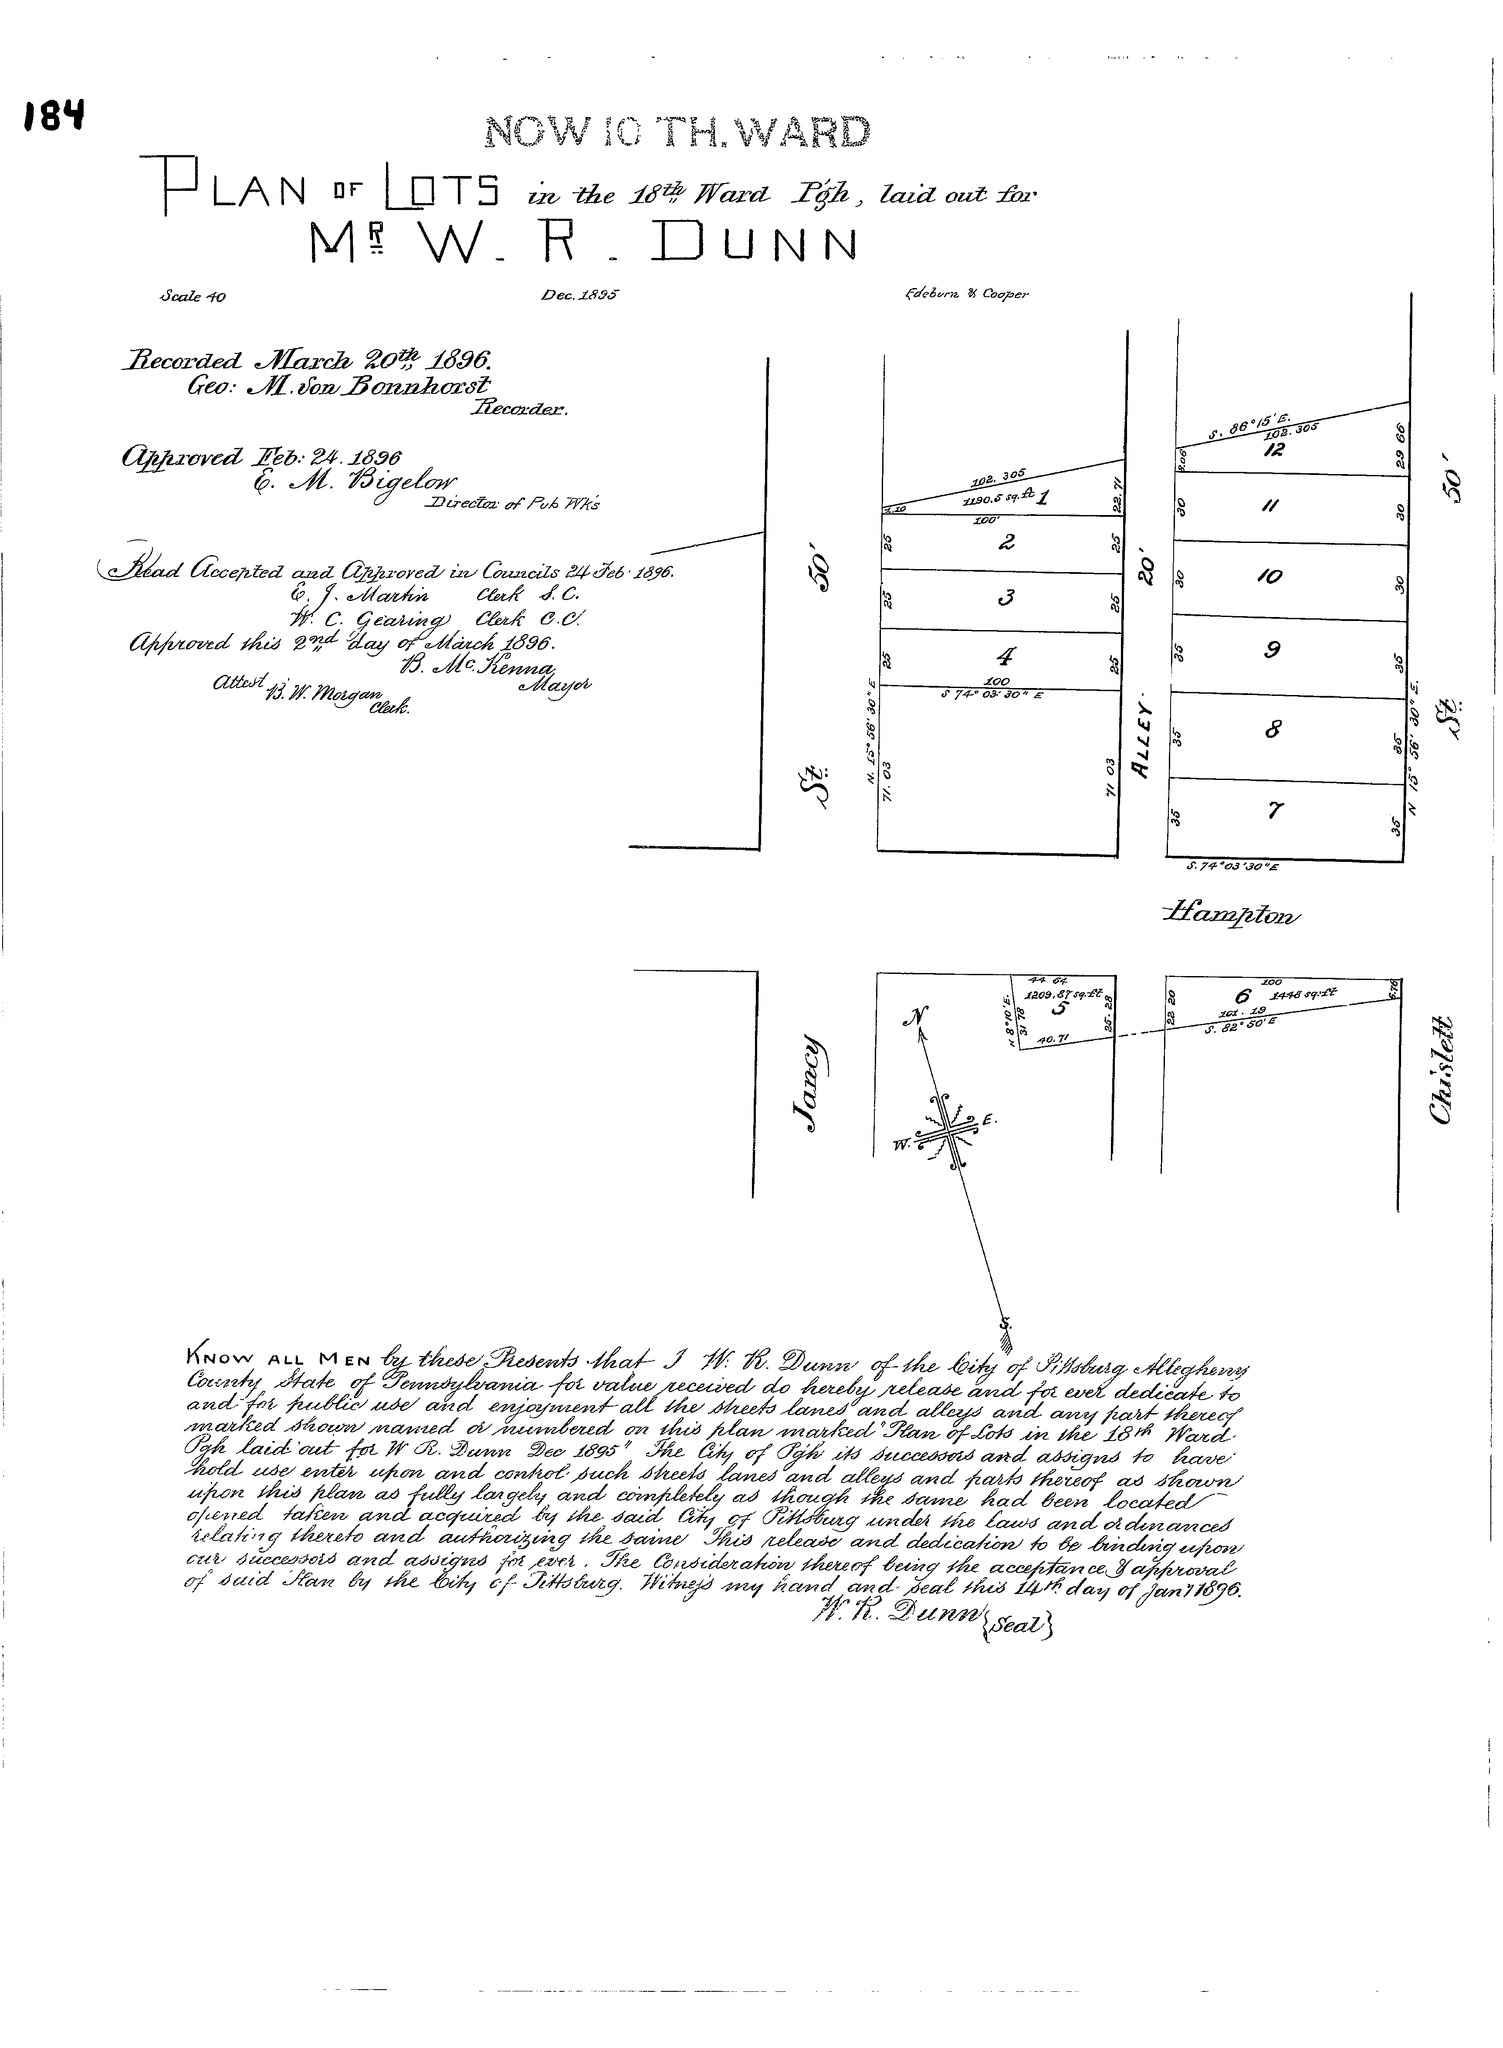 184
NOW 10 TH. WARD
PLAN OF LOTS in the 18th Ward P'gh, laid out for
MR W. R. DUNN
Scale 40 Dec. 1895 Edeburn & Cooper
Recorded March 20th 1896.
Geo: M. von Bonnhorst
Recorder.
Approved Feb: 24. 1896
E. M. Bigelow
Director of Pub Wk's
Read Accepted and Approved in Councils 24 Feb. 1896.
E. J. Martin Clerk S. C.
W. C. Gearing Clerk C. C.
Approved this 2nd day of March 1896.
B. Mc. Kenna
Mayor
Attest B. W. Morgan
Clerk.
S. 86° 15' E.
102.305
12
29 66
102.305
1190.5 sq.ft 1
22.71
100'
30 11 30
50'
25 2 25
30 10 30
50'
20'
25 3 25
35 9 35
25 4 25
100
S 74° 03' 30" E
N. 15° 56' 30" E
71.03
71 03
ALLEY.
35 8 35
N 15° 56' 30" E.
St.
St.
35 7 35
S. 74° 03' 30" E
Hampton
44 64
1209.87 sq.ft
5
25.28
40.71
100
6 1448 sq:ft
22 20
101.19
S. 82° 50' E
Jancy
Chislett
N
W. E.
S.
KNOW ALL MEN by these Presents that I W. R. Dunn of the City of Pittsburg Allegheny
County State of Pennsylvania for value received do hereby release and for ever dedicate to
and for public use and enjoyment all the streets lanes and alleys and any part thereof
marked shown named or numbered on this plan marked "Plan of Lots in the 18th Ward
Pgh laid out for W R. Dunn Dec 1895" The City of Pgh its successors and assigns to have
hold use enter upon and control such streets lanes and alleys and parts thereof as shown
upon this plan as fully largely and completely as though the same had been located
opened taken and acquired by the said City of Pittsburg under the laws and ordinances
relating thereto and authorizing the same This release and dedication to be binding upon
our successors and assigns for ever. The Consideration thereof being the acceptance & approval
of said Plan by the City of Pittsburg. Witness my hand and seal this 14th day of Jany 1896.
W. R. Dunn {Seal}